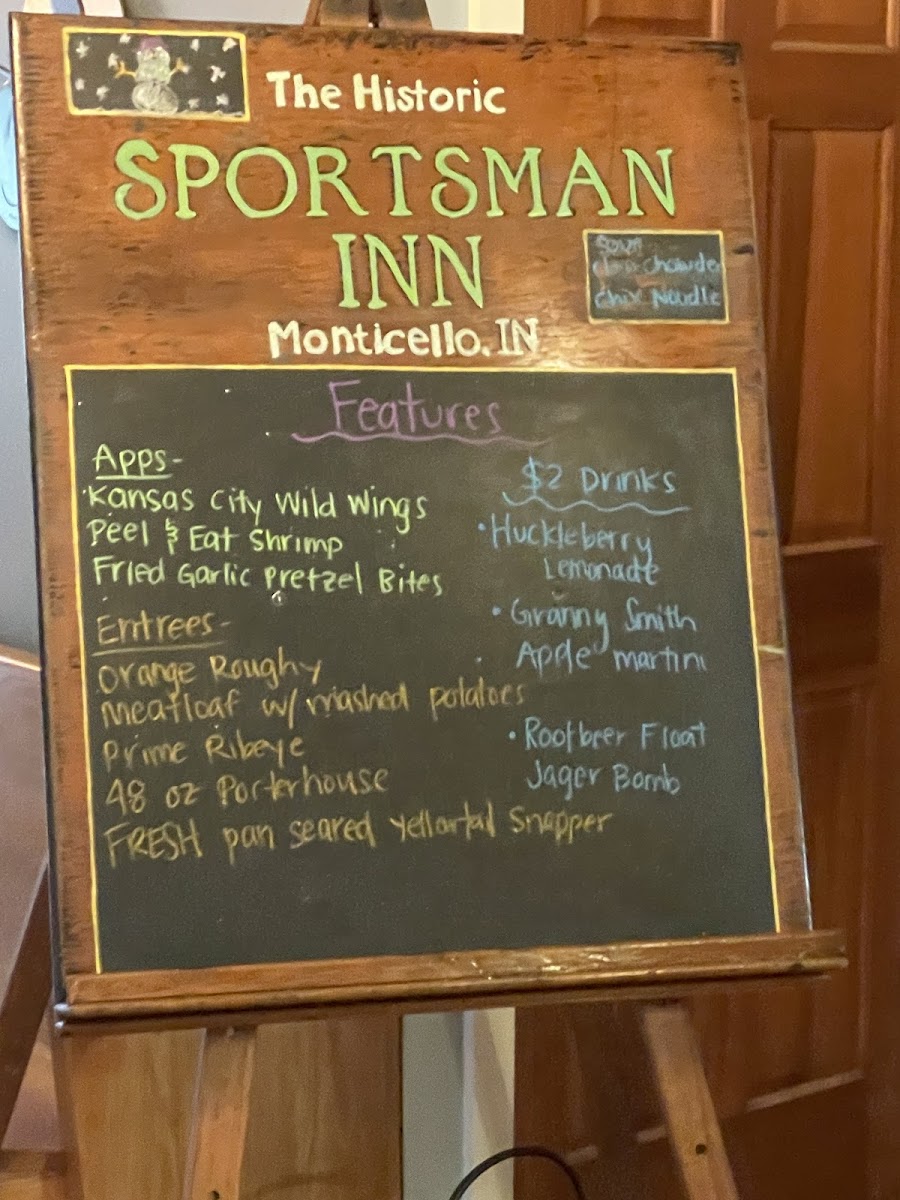 The Historic
SPORTSMAN
INN
Monticello, IN
Soup
clam chowder
chix Noodle
Features
Apps-
Kansas City Wild Wings
Peel & Eat Shrimp
Fried Garlic Pretzel Bites
Entrees-
Orange Roughy
meatloaf w/ mashed potatoes
Prime Ribeye
48 oz Porterhouse
FRESH pan seared yellowtail Snapper
$2 Drinks
• Huckleberry
Lemonade
• Granny Smith
Apple martini
• Rootbeer Float
Jager Bomb